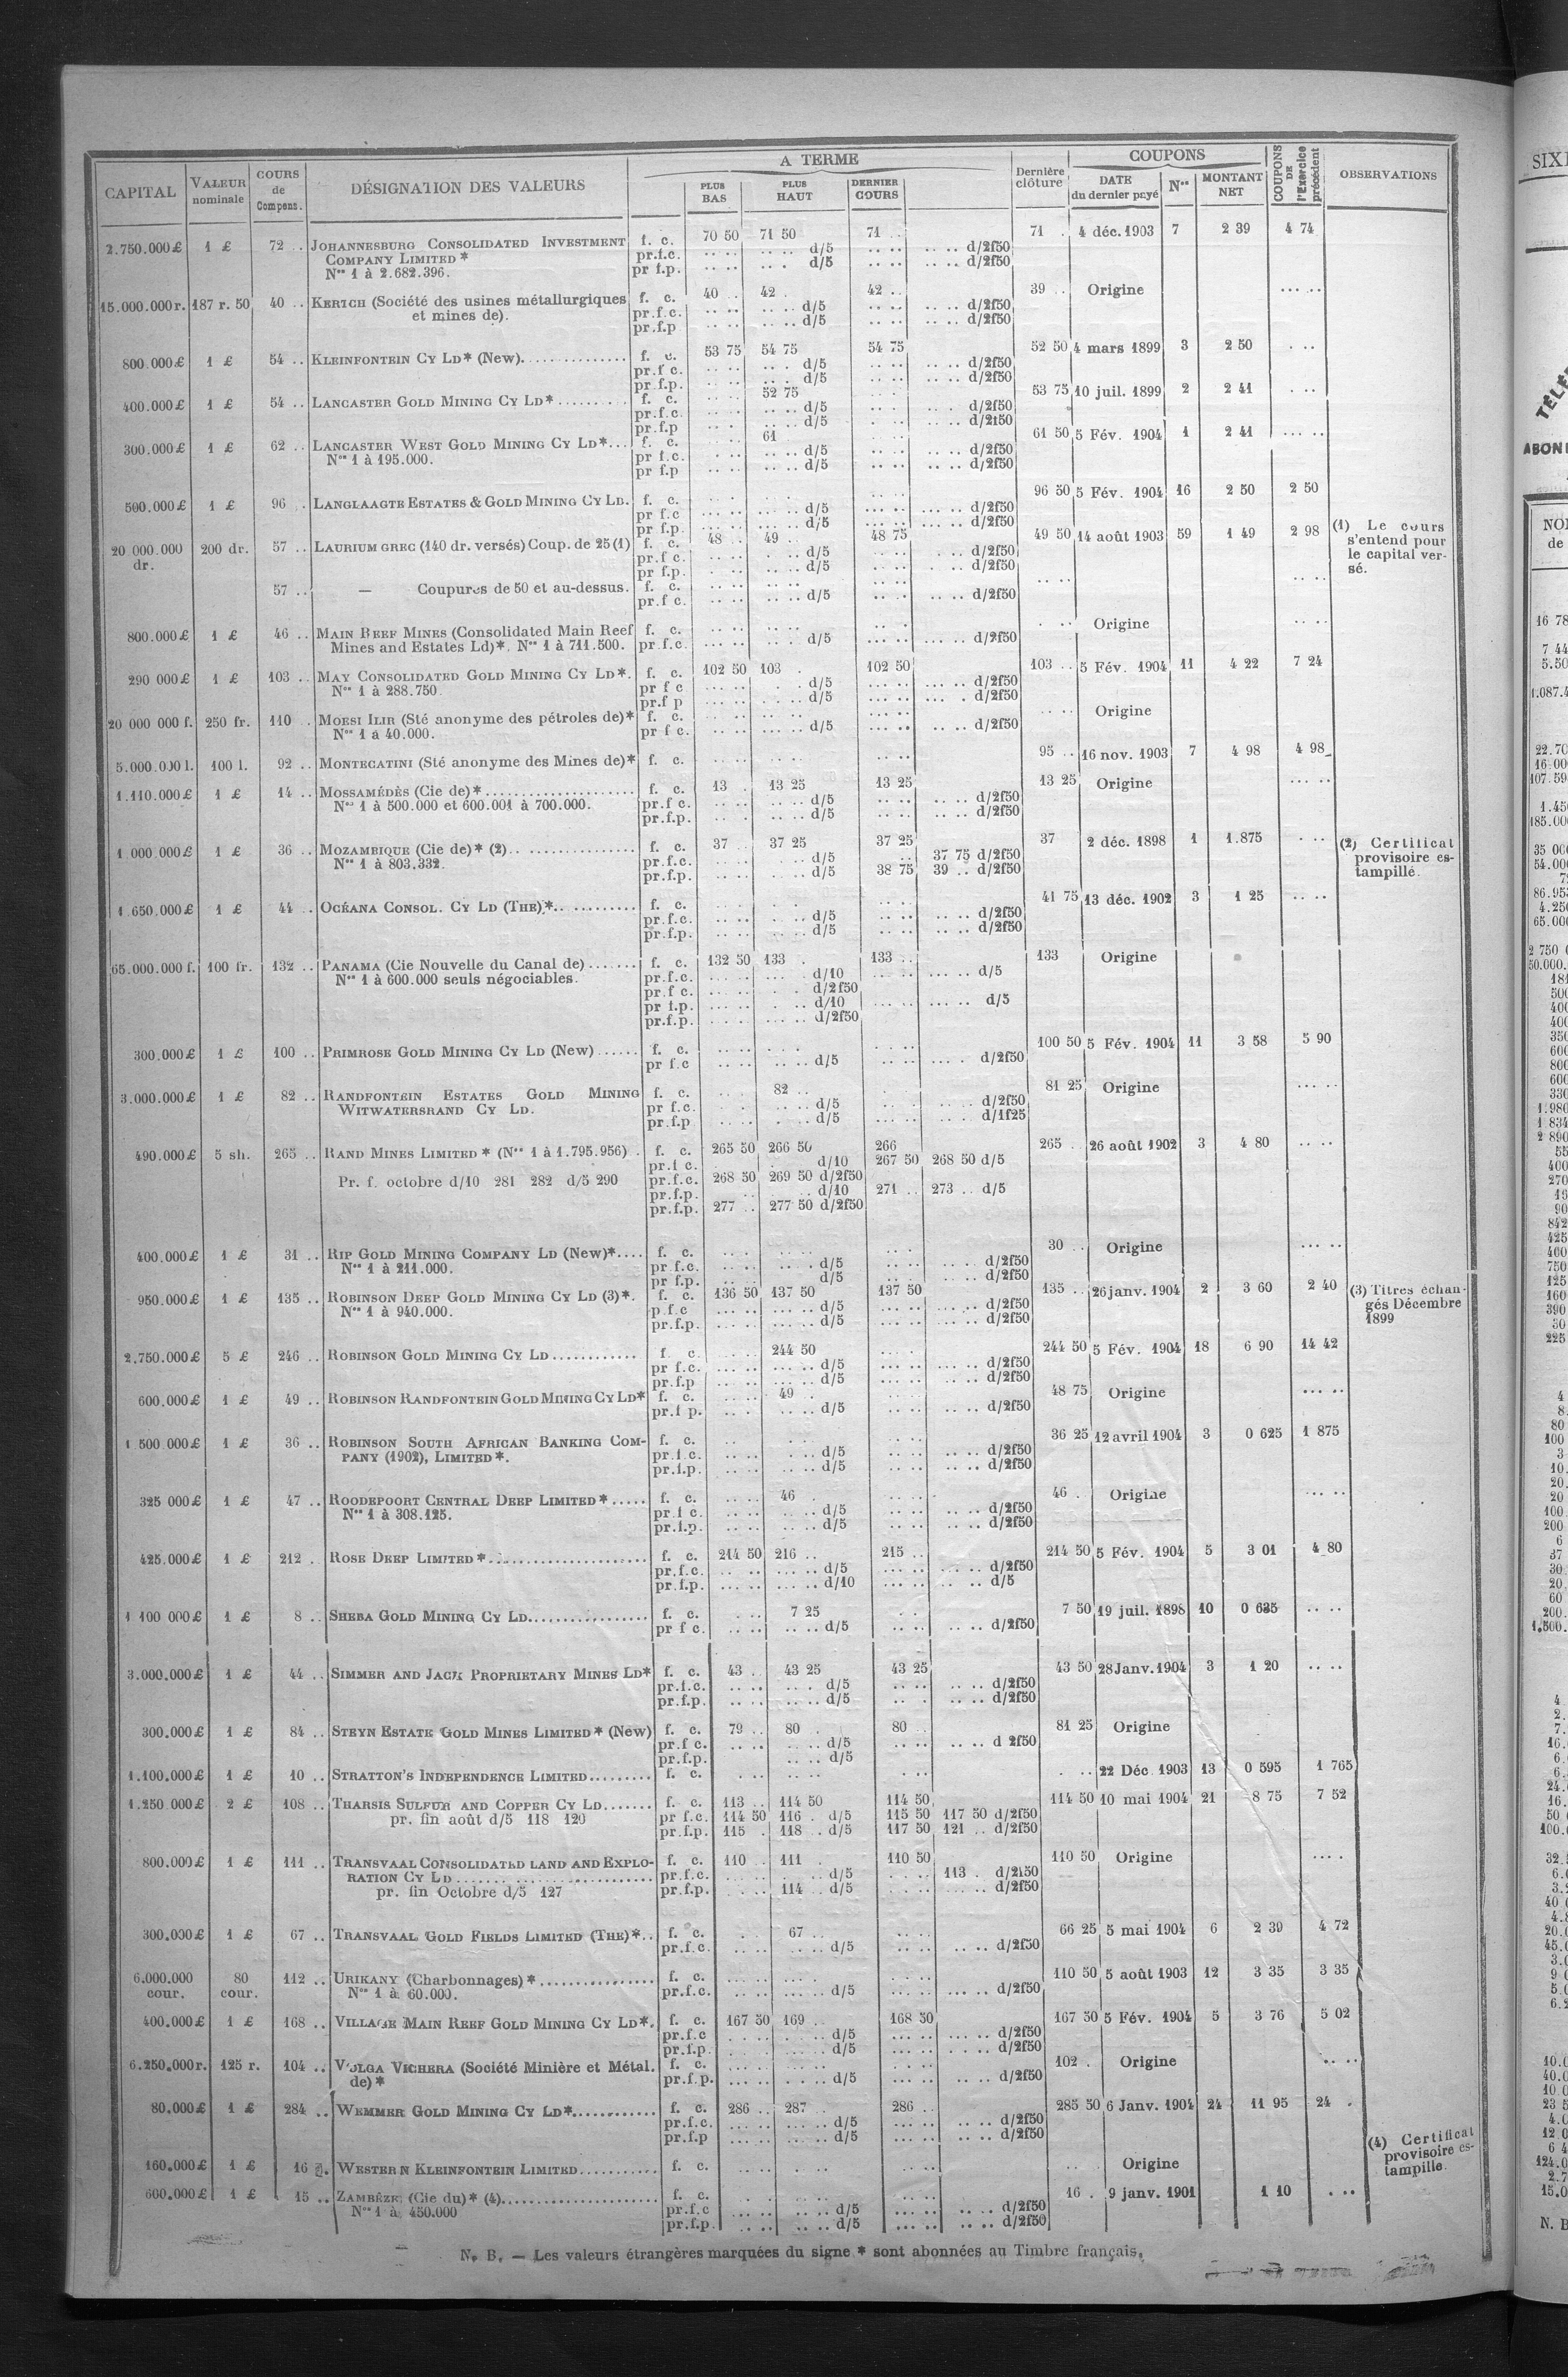 A TERME
COUPONS
CAPITAL VALEUR nominale COURS de Compens. DÉSIGNATION DES VALEURS PLUS BAS PLUS HAUT DERNIER COURS Dernière clôture DATE du dernier payé Nos MONTANT NET COUPONS DE l'Exercice précédent OBSERVATIONS
2.750.000£ 1 £ 72 .. JOHANNESBURG CONSOLIDATED INVESTMENT f. c. 70 50 71 50 71 .. 71 . 4 déc. 1903 7 2 39 4 74
COMPANY LIMITED * pr.f.c. .. .. .. .. d/5 .. .. .. .. d/2f50
Nos 1 à 2.682.396. pr f.p. .. .. .. . d/5 .. .. .. .. d/2f50
15.000.000r. 187 r. 50 40 .. KERTCH (Société des usines métallurgiques f. c. 40 .. 42 . 42 .. 39 .. Origine ... ..
et mines de). pr.f.c. .. .. .. .. d/5 .. .. .. .. d/2f50
pr.f.p .. .. .. .. d/5 .. .. .. .. d/2f50
800.000£ 1 £ 54 .. KLEINFONTEIN CY LD* (New). f. c. 53 75 54 75 54 75 52 50 4 mars 1899 3 2 50 . ..
pr.f c. .. .. .. . d/5 .. .. .. .. d/2f50
pr.f.p. .. .. .. . d/5 .. .. .. .. d/2f50
400.000£ 1 £ 54 .. LANCASTER GOLD MINING CY LD* f. c. 52 75 53 75 10 juil. 1899 2 2 41 . ..
pr.f.c. .. .. .. .. d/5 .. .. .. . d/2f50
pr.f.p .. . .. .. d/5 .. .. .. .. d/2f50
300.000£ 1 £ 62 .. LANCASTER WEST GOLD MINING CY LD*... f. c. 61 61 50 5 Fév. 1904 1 2 41 ... ..
Nos 1 à 195.000. pr f.c. . .. .. .. d/5 .. .. .. .. d/2f50
pr f.p .. .. .. .. d/5 .. .. .. .. d/2f50
500.000£ 1 £ 96 . LANGLAAGTE ESTATES & GOLD MINING CY LD. f. c. 96 50 5 Fév. 1904 16 2 50 2 50
pr f.c ... .. ... .. d/5 ... .. ... .. d/2f50
pr f.p. ... .. ... .. d/5 ... .. ... .. d/2f50
20 000.000 dr. 200 dr. 57 .. LAURIUM GREC (140 dr. versés) Coup. de 25 (1) f. c. 48 .. 49 .. 48 75 49 50 14 août 1903 59 1 49 2 98 (1) Le cours s'entend pour le capital versé.
pr.f c. .. .. . .. d/5 .. .. . .. d/2f50
pr f.p. .. .. .. .. d/5 .. .. . .. d/2f50
57 .. — Coupures de 50 et au-dessus. f. c. .. .. .. .. .. .. .. .. .. ..
pr.f c. .. .. .. .. d/5 .. .. .. .. d/2f50
800.000£ 1 £ 46 .. MAIN REEF MINES (Consolidated Main Reef f. c. .. .. .. .. .. . . .. Origine .. ..
Mines and Estates Ld)*. Nos 1 à 711.500. pr.f.c. ... .. .. .. d/5 ... .. ... .. d/2f50
290 000£ 1 £ 103 .. MAY CONSOLIDATED GOLD MINING CY LD*. f. c. 102 50 103 . 102 50 103 .. 5 Fév. 1904 11 4 22 7 24
Nos 1 à 288.750. pr f c ... .. . . d/5 ... .. ... .. d/2f50
pr.f p ... .. . .. d/5 ... .. ... . d/2f50
20 000 000 f. 250 fr. 110 . MOESI ILIR (Sté anonyme des pétroles de)* f. c. .. .. .. .. ... .. .. .. Origine
Nos 1 à 40.000. pr f c. ... .. ... .. d/5 ... .. .. .. d/2f50
5.000.000 l. 100 l. 92 .. MONTECATINI (Sté anonyme des Mines de)* f. c. .. .. .. .. .. .. 95 .. 16 nov. 1903 7 4 98 4 98
1.110.000£ 1 £ 14 .. MOSSAMÉDÈS (Cie de)* f. c. 13 . 13 25 13 25 13 25 Origine ... ..
Nos 1 à 500.000 et 600.001 à 700.000. pr.f c. .. .. .. .. d/5 .. .. .. .. d/2f50
pr.f.p. .. . .. .. d/5 .. .. .. .. d/2f50
1.000.000£ 1 £ 36 .. MOZAMBIQUE (Cie de)* (2) f. c. 37 .. 37 25 37 25 37 2 déc. 1898 1 1.875 . .. (2) Certificat provisoire estampillé.
Nos 1 à 803.332. pr.f.c. .. .. .. .. d/5 .. 37 75 d/2f50
pr.f.p. .. .. .. .. d/5 38 75 39 .. d/2f50
1.650.000£ 1 £ 44 .. OCÉANA CONSOL. CY LD (THE)* f. c. 41 75 13 déc. 1902 3 1 25 .. ..
pr.f.c. .. .. .. .. d/5 .. .. .. .. d/2f50
pr.f.p. .. .. .. .. d/5 .. .. .. .. d/2f50
65.000.000 f. 100 fr. 132 .. PANAMA (Cie Nouvelle du Canal de) f. c. 132 50 133 . 133 .. 133 Origine
Nos 1 à 600.000 seuls négociables. pr.f.c. ... .. d/10 ... .. ... .. d/5
pr.f c. d/2f50
pr f.p. d/10 ... .. d/5
pr.f.p. d/2f50
300.000£ 1 £ 100 .. PRIMROSE GOLD MINING CY LD (New) f. c. 100 50 5 Fév. 1904 11 3 58 5 90
pr f.c .. .. .. .. d/5 ... .. ... . d/2f50
3.000.000£ 1 £ 82 .. RANDFONTEIN ESTATES GOLD MINING f. c. 82 .. 81 25 Origine ... ..
WITWATERSRAND CY LD. pr f.c. . . .. .. d/5 .. .. .. .. d/2f50
pr.f.p .. .. . .. d/5 ... .. .. . d/1f25
490.000£ 5 sh. 265 .. RAND MINES LIMITED * (Nos 1 à 1.795.956) f. c. 265 50 266 50 266 265 .. 26 août 1902 3 4 80 .. ..
pr.f c. d/10 267 50 268 50 d/5
Pr. f. octobre d/10 281 282 d/5 290 pr.f.c. 268 50 269 50 d/2f50
pr.f.p. d/10 271 .. 273 .. d/5
pr.f.p. 277 .. 277 50 d/2f50
400.000£ 1 £ 31 .. RIP GOLD MINING COMPANY LD (New)*.... f. c. 30 .. Origine ... ..
Nos 1 à 211.000. pr.f.c. .. .. .. .. d/5 .. .. .. . d/2f50
pr f.p. .. .. d/5 .. .. . .. d/2f50
950.000£ 1 £ 135 .. ROBINSON DEEP GOLD MINING CY LD (3)*. f. c. 136 50 137 50 137 50 135 .. 26 janv. 1904 2 3 60 2 40 (3) Titres échangés Décembre 1899
Nos 1 à 940.000. p.f.c ... .. ... .. d/5 ... .. ... .. d/2f50
pr.f.p. ... .. ... .. d/5 ... .. ... .. d/2f50
2.750.000£ 5 £ 246 .. ROBINSON GOLD MINING CY LD f. c. 244 50 244 50 5 Fév. 1904 18 6 90 14 42
pr f.c. ... .. ... .. d/5 ... .. ... .. d/2f50
pr.f.p ... .. ... .. d/5 ... .. ... .. d/2f50
600.000£ 1 £ 49 .. ROBINSON RANDFONTEIN GOLD MINING CY LD* f. c. 49 . 48 75 Origine ... ..
pr.f p. .. . .. .. d/5 .. .. .. .. d/2f50
1 500 000£ 1 £ 36 .. ROBINSON SOUTH AFRICAN BANKING COM- f. c. 36 25 12 avril 1904 3 0 625 1 875
PANY (1902), LIMITED *. pr.f.c. .. .. .. .. d/5 .. .. .. .. d/2f50
pr.f.p. .. .. .. .. d/5 .. .. .. .. d/2f50
325 000£ 1 £ 47 .. ROODEPOORT CENTRAL DEEP LIMITED * f. c. 46 . 46 . Origine ... ..
Nos 1 à 308.125. pr.f c. .. .. .. .. d/5 .. .. .. .. d/2f50
pr.f.p. .. .. .. .. d/5 .. .. .. .. d/2f50
425.000£ 1 £ 212 . ROSE DEEP LIMITED * f. c. 214 50 216 .. 215 .. 214 50 5 Fév. 1904 5 3 01 4 80
pr.f.c. .. .. ... .. d/5 ... .. ... .. d/2f50
pr.f.p. ... .. ... .. d/10 ... .. .. .. d/5
1 100 000£ 1 £ 8 .. SHEBA GOLD MINING CY LD f. c. 7 25 7 50 19 juil. 1898 10 0 625 .. ..
pr f c. .. .. .. .. d/5 .. .. .. .. d/2f50
3.000.000£ 1 £ 44 .. SIMMER AND JACK PROPRIETARY MINES LD* f. c. 43 .. 43 25 43 25 43 50 28 Janv. 1904 3 1 20 .. ..
pr.f.c. .. .. .. . d/5 .. .. .. .. d/2f50
pr.f.p. .. .. .. .. d/5 .. . .. .. d/2f50
300.000£ 1 £ 84 .. STEYN ESTATE GOLD MINES LIMITED * (New) f. c. 79 .. 80 . 80 .. 81 25 Origine
pr.f c. .. .. .. .. d/5 .. .. .. .. d 2f50
pr.f.p. .. .. d/5
1.100.000£ 1 £ 10 .. STRATTON'S INDEPENDENCE LIMITED f. c. . .. .. .. . .. . .. 22 Déc. 1903 13 0 595 1 765
1.250 000£ 2 £ 108 .. THARSIS SULFUR AND COPPER CY LD f. c. 113 .. 114 50 114 50 114 50 10 mai 1904 21 8 75 7 52
pr. fin août d/5 118 120 pr f.c. 114 50 116 . d/5 115 50 117 50 d/2f50
pr.f.p. 115 . 118 .. d/5 117 50 121 .. d/2f50
800.000£ 1 £ 111 .. TRANSVAAL CONSOLIDATED LAND AND EXPLO- f. c. 110 .. 111 . 110 50 110 50 Origine ... .
RATION CY LD pr.f.c. d/5 113 . d/2f50
pr. fin Octobre d/5 127 pr.f.p. 114 .. d/5 d/2f50
300.000£ 1 £ 67 .. TRANSVAAL GOLD FIELDS LIMITED (THE)*.. f. c. 67 .. 66 25 5 mai 1904 6 2 39 4 72
pr.f.c. .. .. d/5 .. .. .. .. d/2f50
6.000.000 cour. 80 cour. 112 .. URIKANY (Charbonnages) * f. c. 110 50 5 août 1903 12 3 35 3 35
Nos 1 à 60.000. pr.f.c. .. .. ... .. d/5 ... .. ... .. d/2f50
400.000£ 1 £ 168 .. VILLAGE MAIN REEF GOLD MINING CY LD*. f. c. 167 50 169 .. 168 50 167 50 5 Fév. 1904 5 3 76 5 02
pr.f.c d/5 ... .. ... .. d/2f50
pr.f.p. d/5 ... .. ... .. d/2f50
6.250.000r. 125 r. 104 .. VOLGA VICHERA (Société Minière et Métal. f. c. 102 . Origine .. ..
de) * pr.f.p. ... .. .. .. d/5 ... .. .. .. d/2f50
80.000£ 1 £ 284 .. WEMMER GOLD MINING CY LD* f. c. 286 .. 287 .. 286 .. 285 50 6 Janv. 1904 24 11 95 24 .
pr.f.c. ... .. ... .. d/5 ... .. .. .. d/2f50
pr.f.p ... .. ... .. d/5 ... .. .. .. d/2f50
160.000£ 1 £ 16 WESTERN KLEINFONTEIN LIMITED f. c. Origine (4) Certificat provisoire estampille.
600.000£ 1 £ 15 .. ZAMBÈZE (Cie du)* (4) f. c. 16 . 9 janv. 1901 1 10 . ..
Nos 1 à 450.000 pr.f.c ... .. .. .. d/5 ... .. .. .. d/2f50
pr.f.p. .. .. .. .. d/5 ... .. .. .. d/2f50
N. B. — Les valeurs étrangères marquées du signe * sont abonnées au Timbre français.